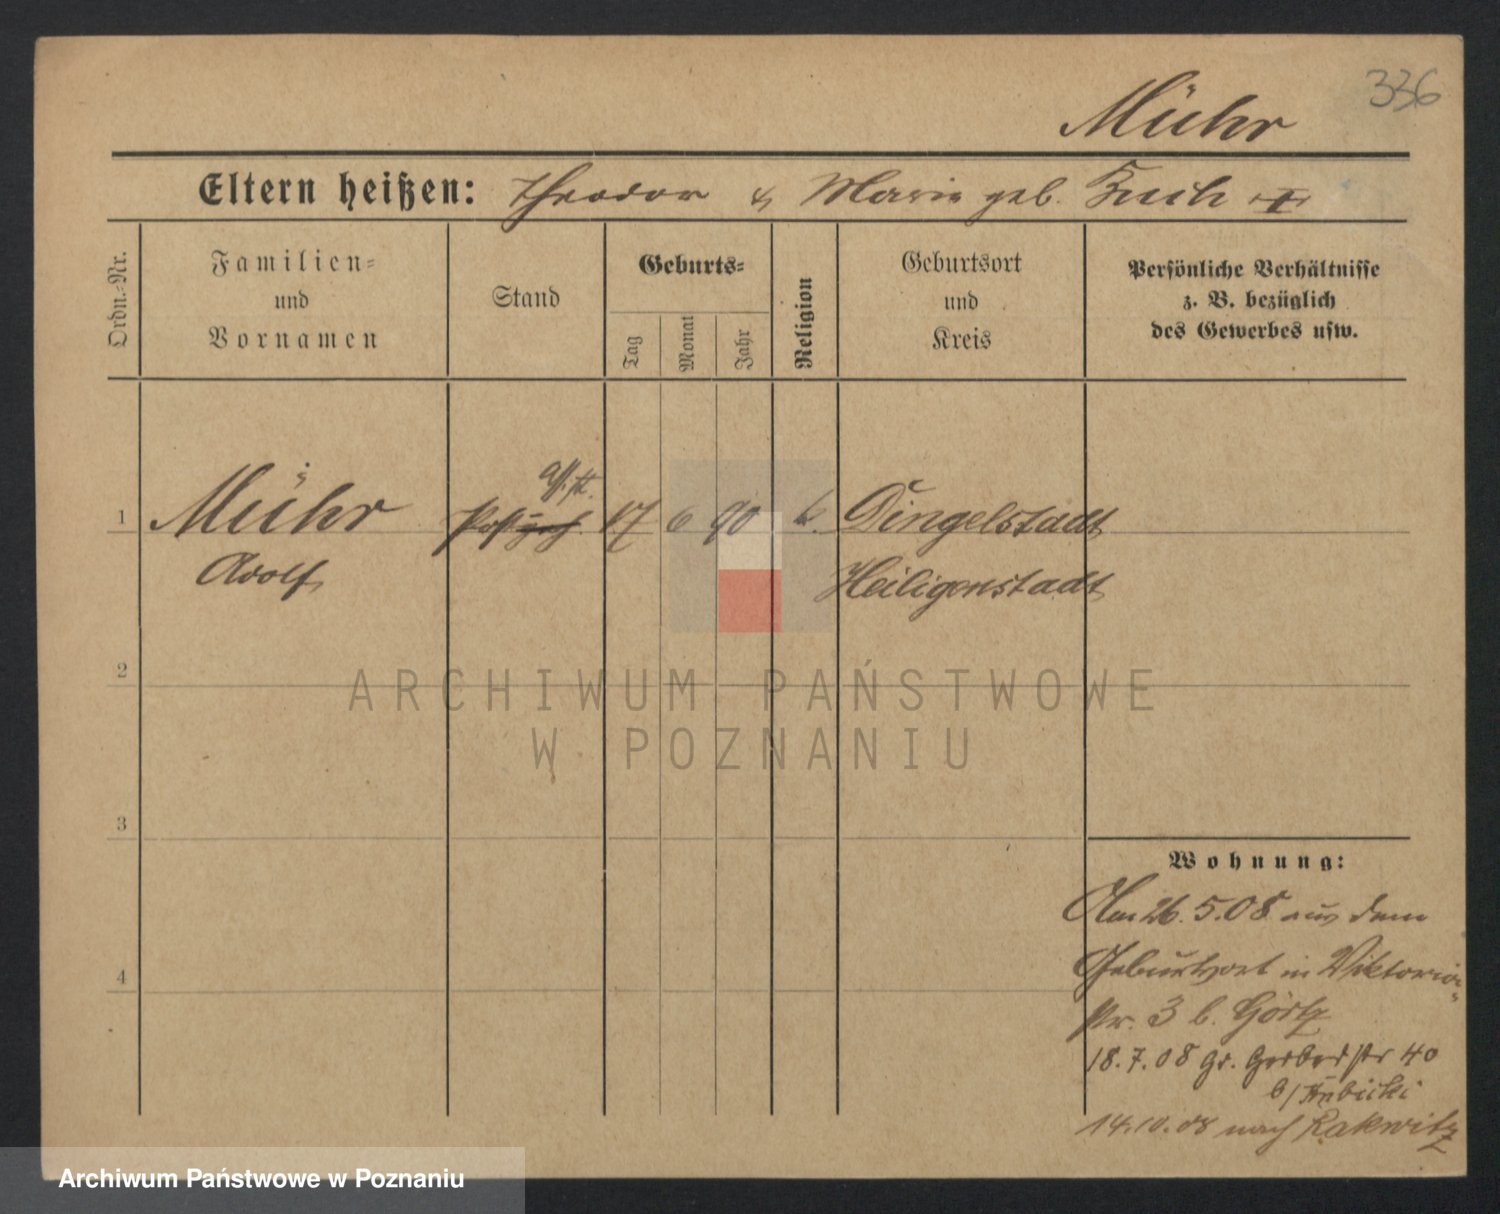 336
Mühr
Eltern heißen: Theodor & Marie geb.
Ordn.-Nr.
Familien-
und
Vornamen
Stand
Geburts-
Tag
Monat
Jahr
Religion
Geburtsort
und
Kreis
Persönliche Verhältnisse
z. B. bezüglich
des Gewerbes usw.
1 Mühr 17 6 90 k. Dingelstadt
Adolf Heiligenstadt
2
3
4
ARCHIWUM PAŃSTWOWE
W POZNANIU
Wohnung:
Am 26.5.08 aus dem
Geburtsort in Viktoria-
str. 3 b. Görtz
18.7.08 Gr. Gerberstr 40
b/
14.10.08 nach Rakwitz
Archiwum Państwowe w Poznaniu